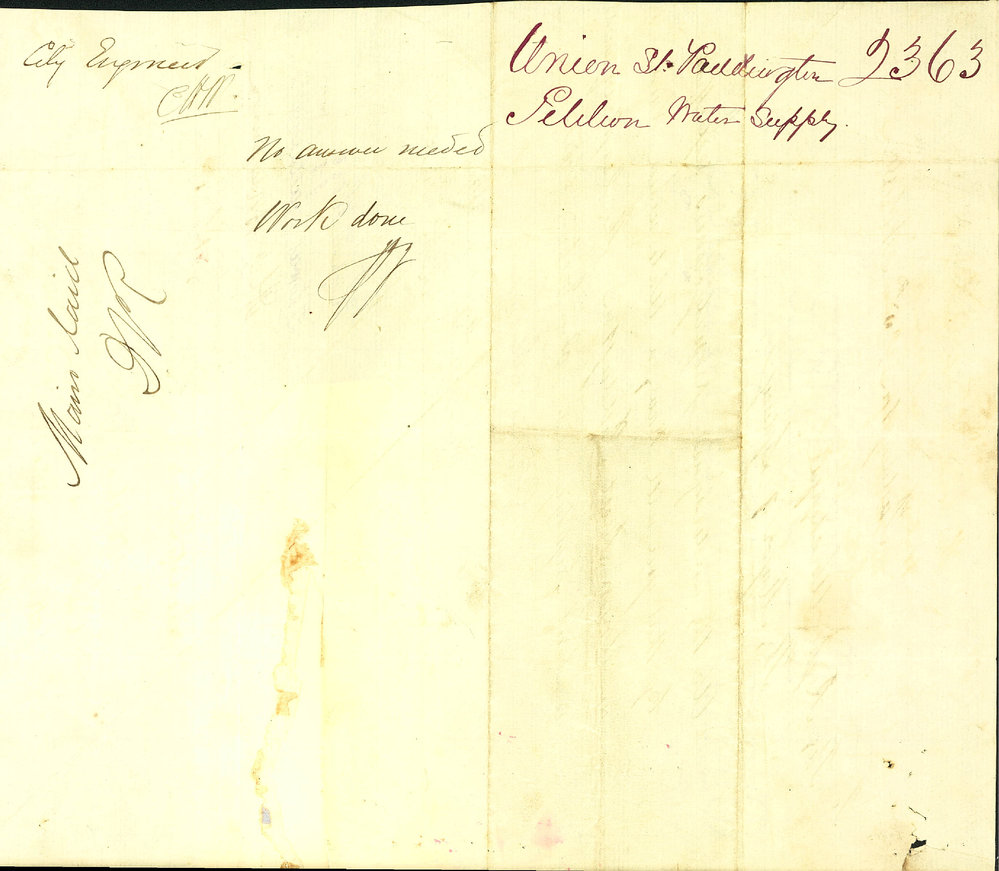 City Engineer
CHW.
No answer needed
Work done
Main laid
Union St. Paddington 2363
Petition Water Supply.